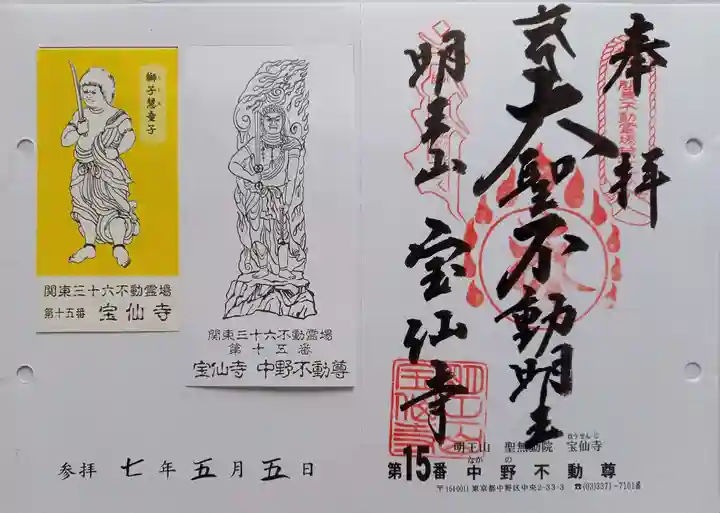 獅子慧童子
関東三十六不動霊場
第十五番 宝仙寺
関東三十六不動霊場
第十五番
宝仙寺 中野不動尊
参拝 七年五月五日
奉拝
大聖不動明王
明王山 宝仙寺
明王山 聖無動院 宝仙寺
ほうせんじ
なかの
第15番 中野不動尊
〒164-0011 東京都中野区中央2-33-3 ☎(03)3371-7101番